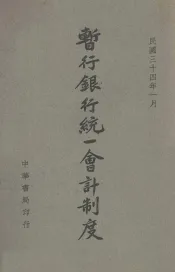 民國三十四年一月
暫行銀行統一會計制度
中華書局印行